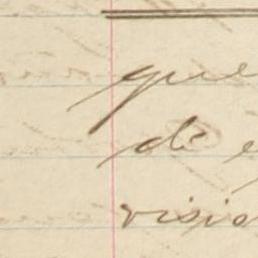 que
de
visio